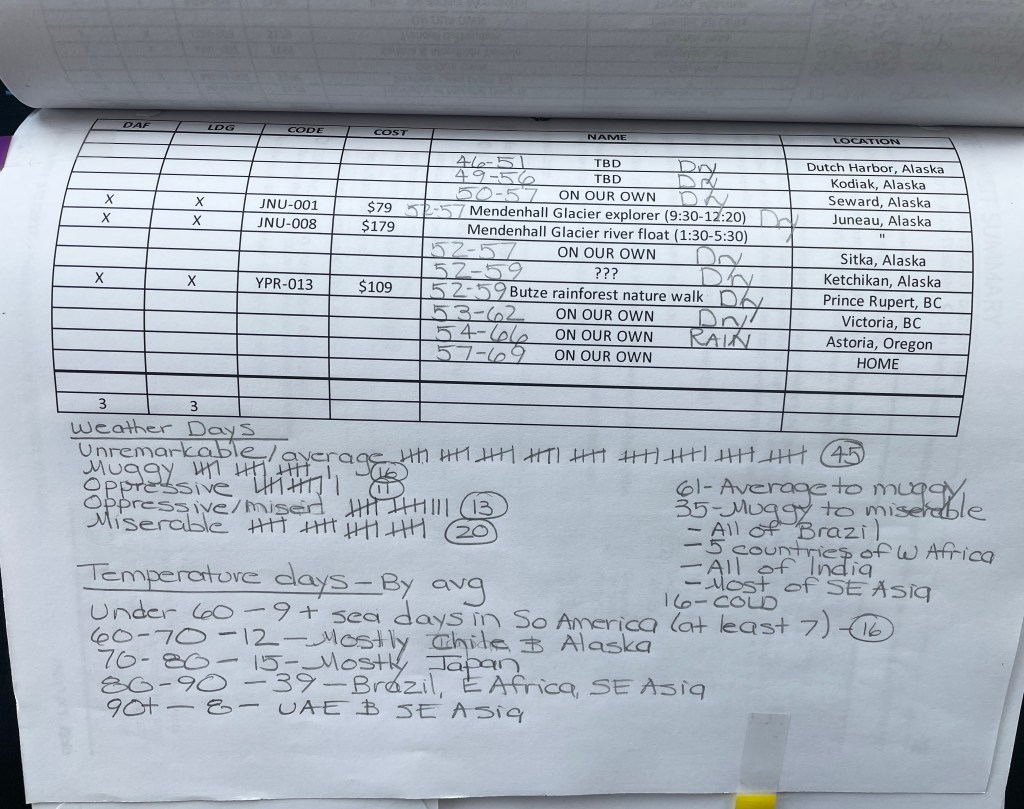 DAF LDG CODE COST NAME LOCATION
46-51 TBD Dry Dutch Harbor, Alaska
49-56 TBD Dry Kodiak, Alaska
50-57 ON OUR OWN Dry Seward, Alaska
X X JNU-001 $79 52-57 Mendenhall Glacier explorer (9:30-12:20) Dry Juneau, Alaska
X X JNU-008 $179 Mendenhall Glacier river float (1:30-5:30) "
52-57 ON OUR OWN Dry Sitka, Alaska
52-59 ??? Dry Ketchikan, Alaska
X X YPR-013 $109 52-59 Butze rainforest nature walk Dry Prince Rupert, BC
53-62 ON OUR OWN Dry Victoria, BC
54-66 ON OUR OWN RAIN Astoria, Oregon
57-69 ON OUR OWN HOME
3 3
Weather Days
Unremarkable/average 45
Muggy 16
Oppressive 11
Oppressive/miserl 13
Miserable 20
61-Average to muggy
35-Muggy to miserable
- All of Brazil
- 5 countries of W Africa
- All of India
- Most of SE Asia
16-COLD
Temperature days - By avg
Under 60 - 9 + sea days in So America (at least 7) - 16
60-70 - 12 - Mostly Chile & Alaska
70-80 - 15 - Mostly Japan
80-90 - 39 - Brazil, E Africa, SE Asia
90+ - 8 - UAE & SE Asia